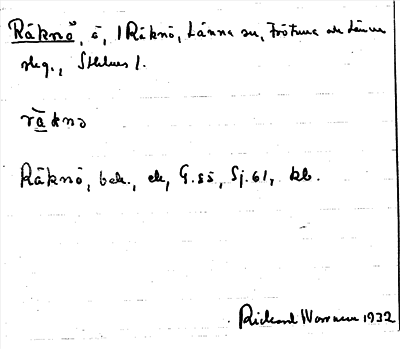 Råknö, ö, 1 Råknö, Länna sn, Frötuna och Länna
sklg., Sthlms l.
råknö
Råknö, bek., ek, G.ss, Sj.61, kb.
Rickard Wornæus 1932